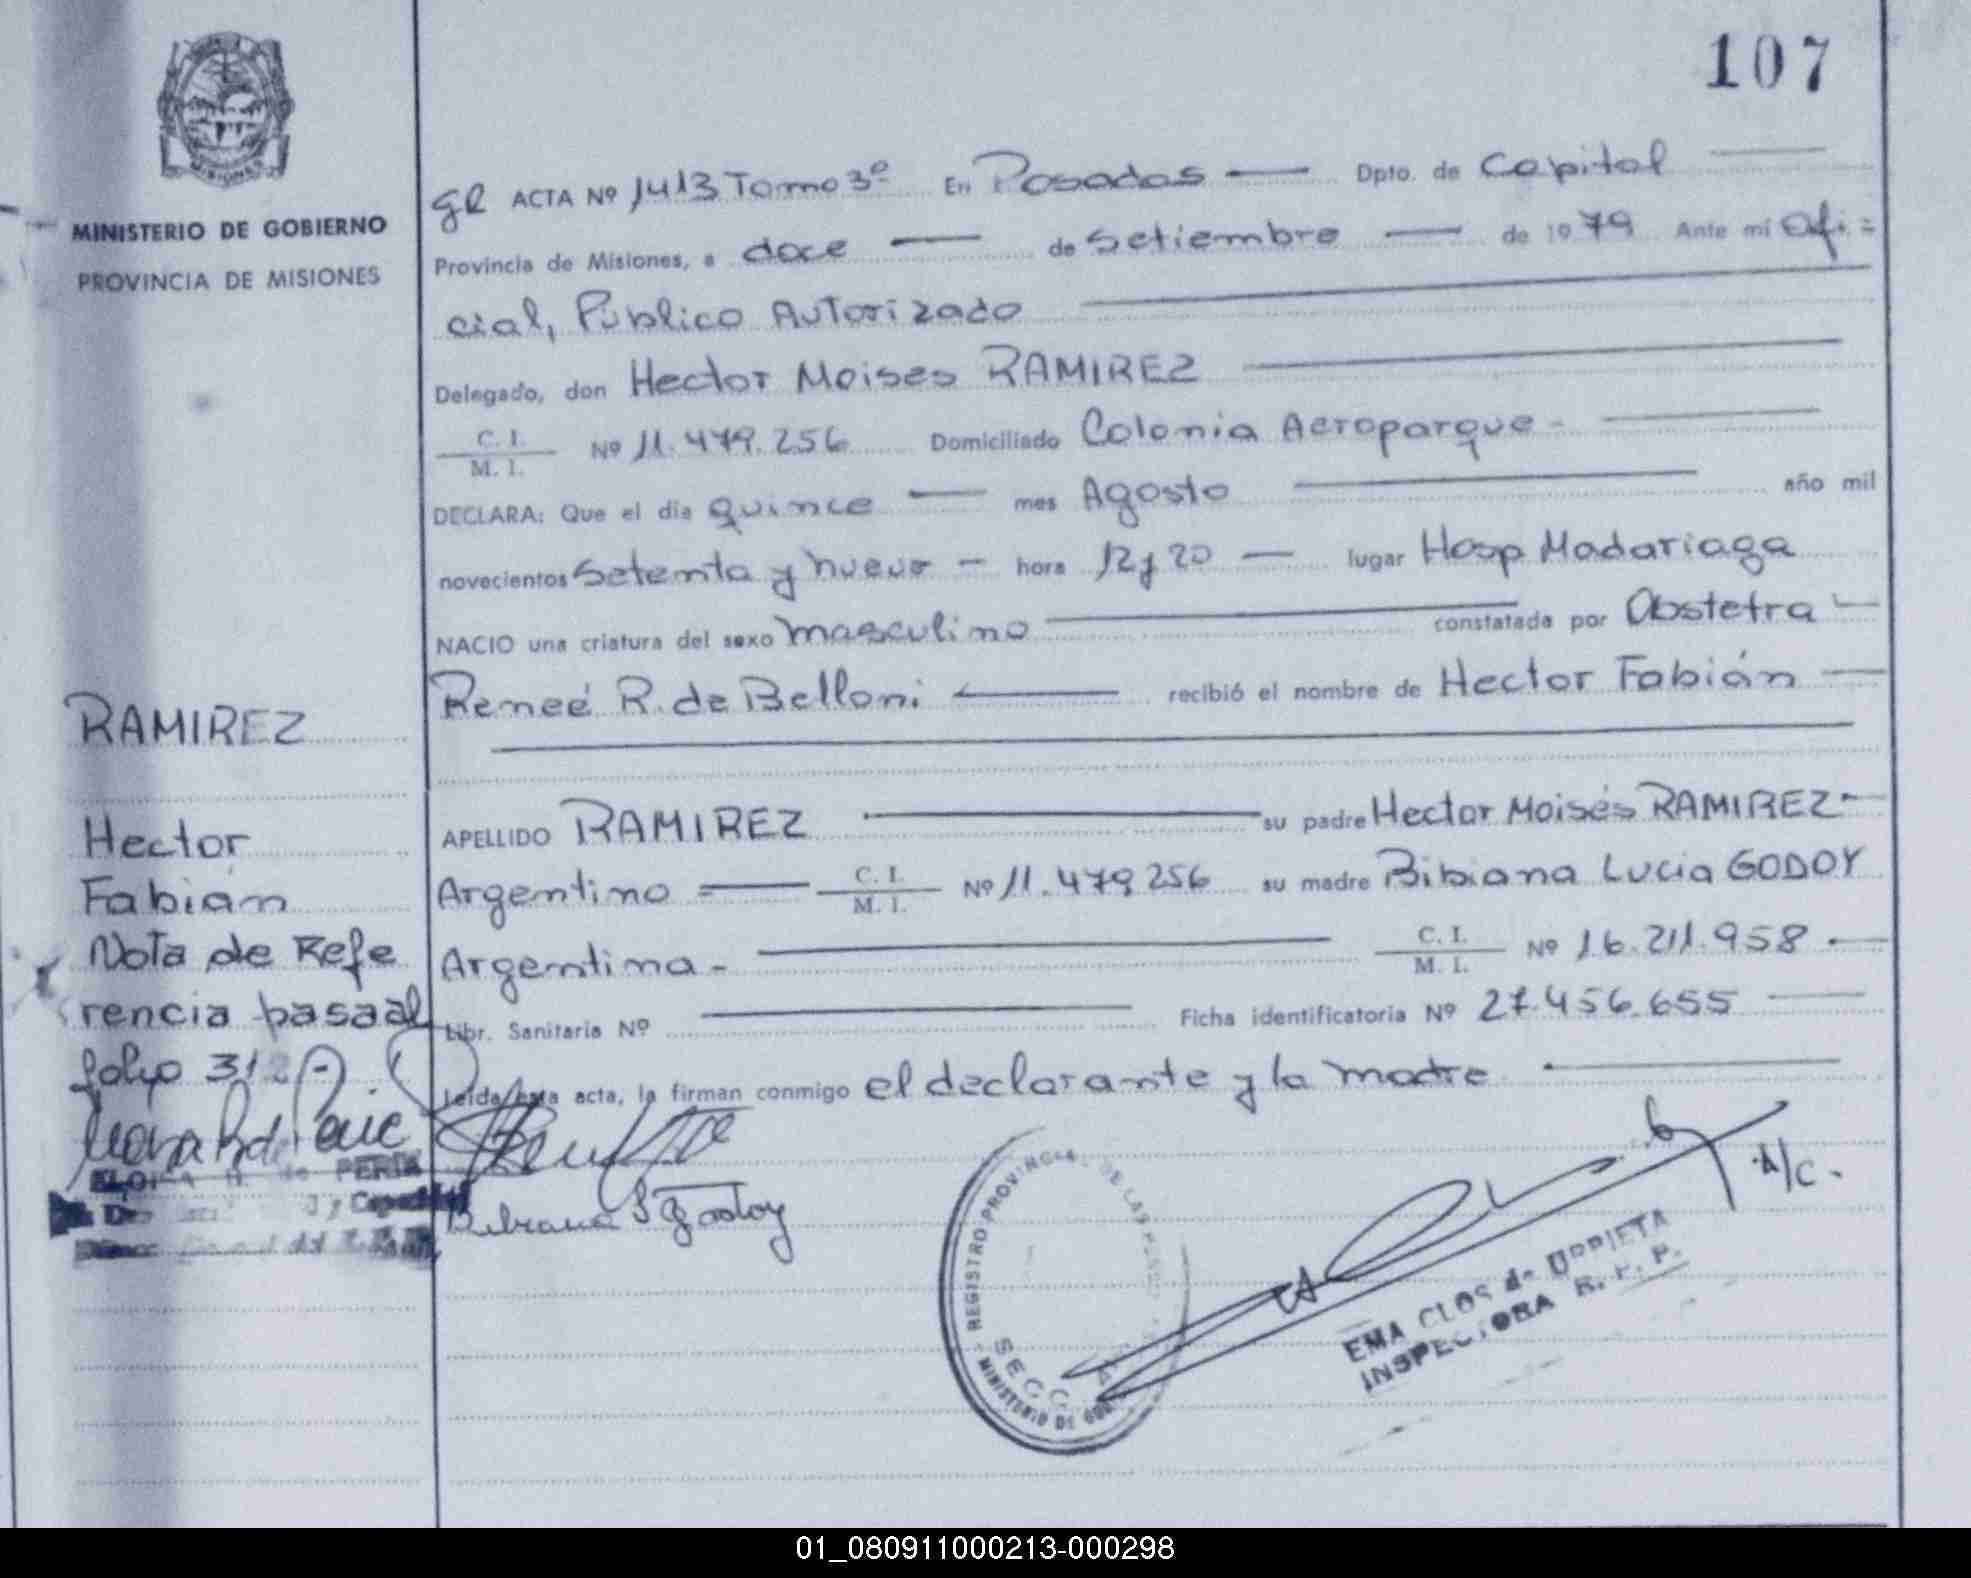 107
MISIONES
MINISTERIO DE GOBIERNO
PROVINCIA DE MISIONES
gl ACTA Nº 1413 Tomo 3º En Posadas Dpto. de Capital
Provincia de Misiones, a doce de Setiembre de 1979 Ante mí Ofi=
cial, Público Autorizado
Delegado, don Hector Moises RAMIREZ
C. I. M. I. Nº 11.479.256 Domiciliado Colonia Aeroparque-
DECLARA: Que el día quince mes Agosto año mil
novecientos Setenta y nueve hora 12 y 20 lugar Hosp Madariaga
NACIO una criatura del sexo masculino constatada por Obstetra
Reneé R. de Belloni recibió el nombre de Hector Fabián
APELLIDO RAMIREZ su padre Hector Moisés RAMIREZ
Argentino C. I. M. I. Nº 11.479256 su madre Bibiana Lucia GODOY
Argentina- C. I. M. I. Nº 16.211.958
Libr. Sanitaria Nº Ficha identificatoria Nº 27.456.655
Leida esta acta, la firman conmigo el declarante y la madre
RAMIREZ
Hector
Fabián
Nota de Refe
rencia pasa al
folio 312
de PERIE
Godoy
A/C.
REGISTRO PROVINCIAL DE LAS
MINISTERIO DE
SECC
EMA CLOS de URRIETA
INSPECTORA R. P. P.
01_080911000213-000298